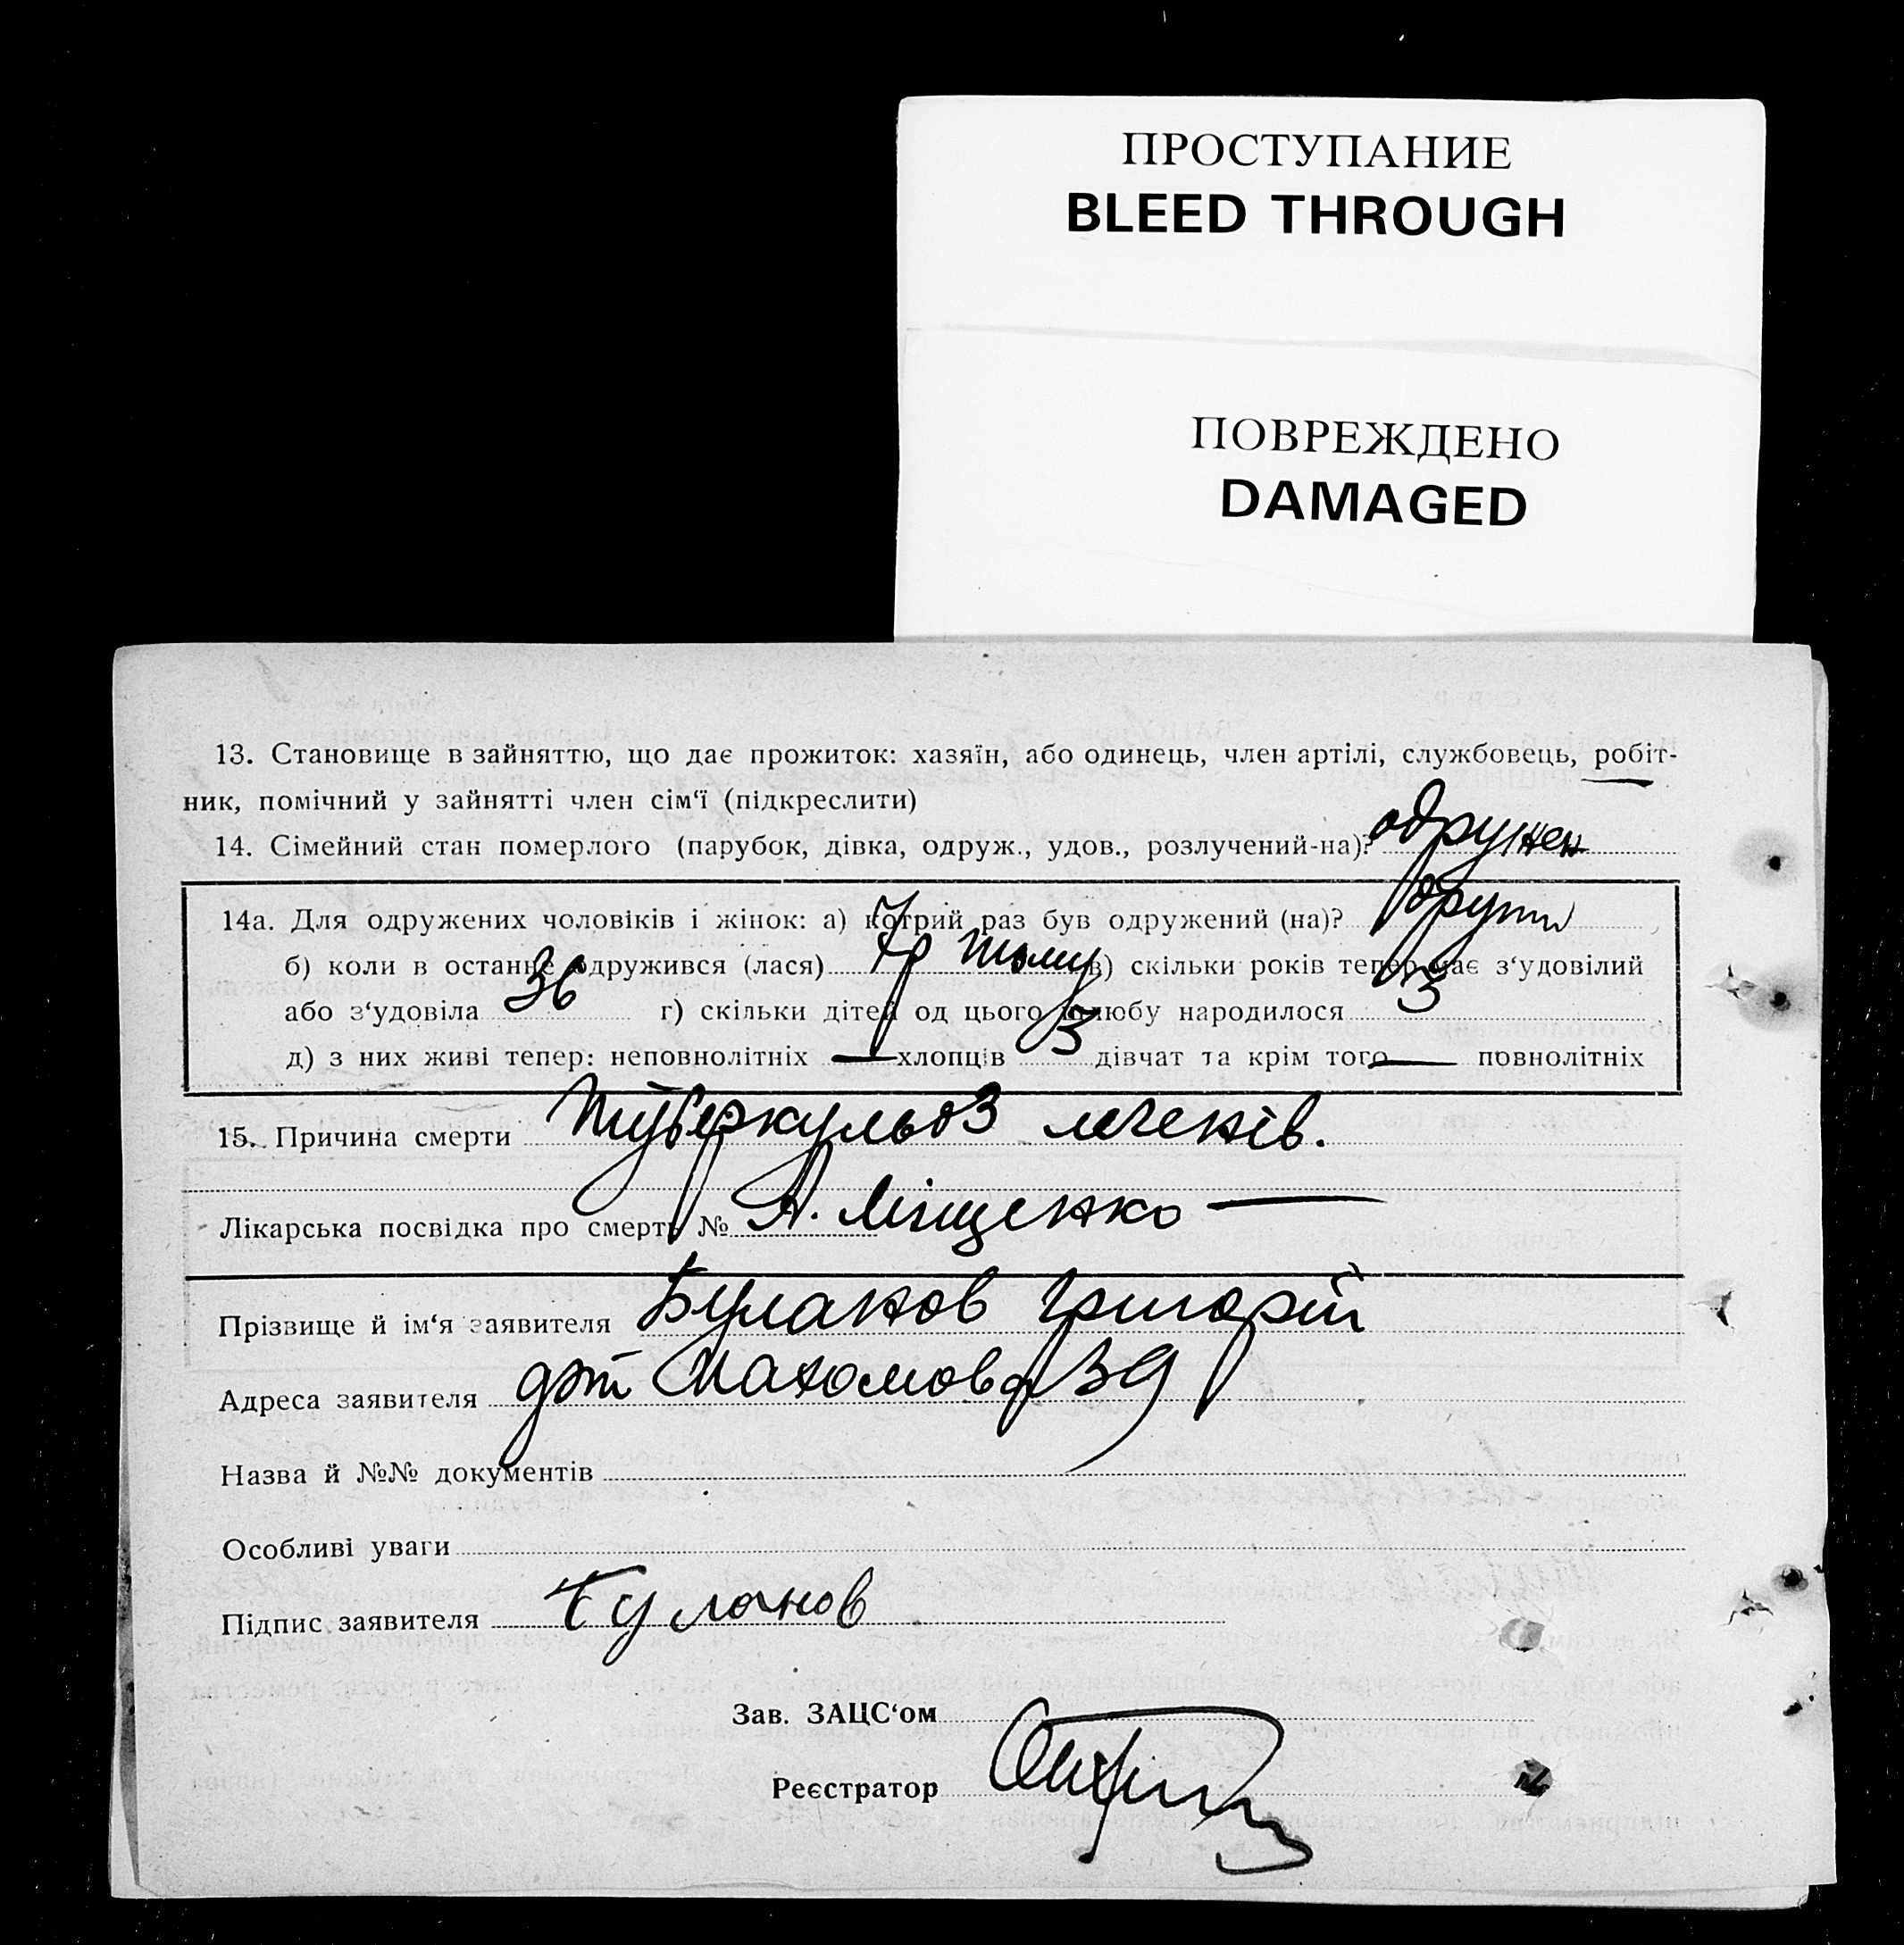 ПРОСТУПАНИЕ
BLEED THROUGH
ПОВРЕЖДЕНО
DAMAGED
13. Становище в зайняттю, що дає прожиток: хазяїн, або одинець, член артілі, службовець, робіт-
ник, помічний у зайнятті член сім'ї (підкреслити)
14. Сімейний стан померлого (парубок, дівка, одруж., удов., розлучений-на)? одружен
14а. Для одружених чоловіків і жінок: а) котрий раз був одружений (на)? другий
б) коли в останнє одружився (лася) 7 р тому в) скільки років тепер має з'удовілий
або з'удовіла 36 г) скільки дітей од цього шлюбу народилося 3
д) з них живі тепер: неповнолітніх — хлопців 3 дівчат та крім того — повнолітніх
15. Причина смерти туберкульоз легенів.
Лікарська посвідка про смерть № А. Міщенко —
Прізвище й ім'я заявителя Буланов Григорій
Адреса заявителя 39
Назва й №№ документів
Особливі уваги
Підпис заявителя Буланов
Зав. ЗАЦС'ом
Реєстратор